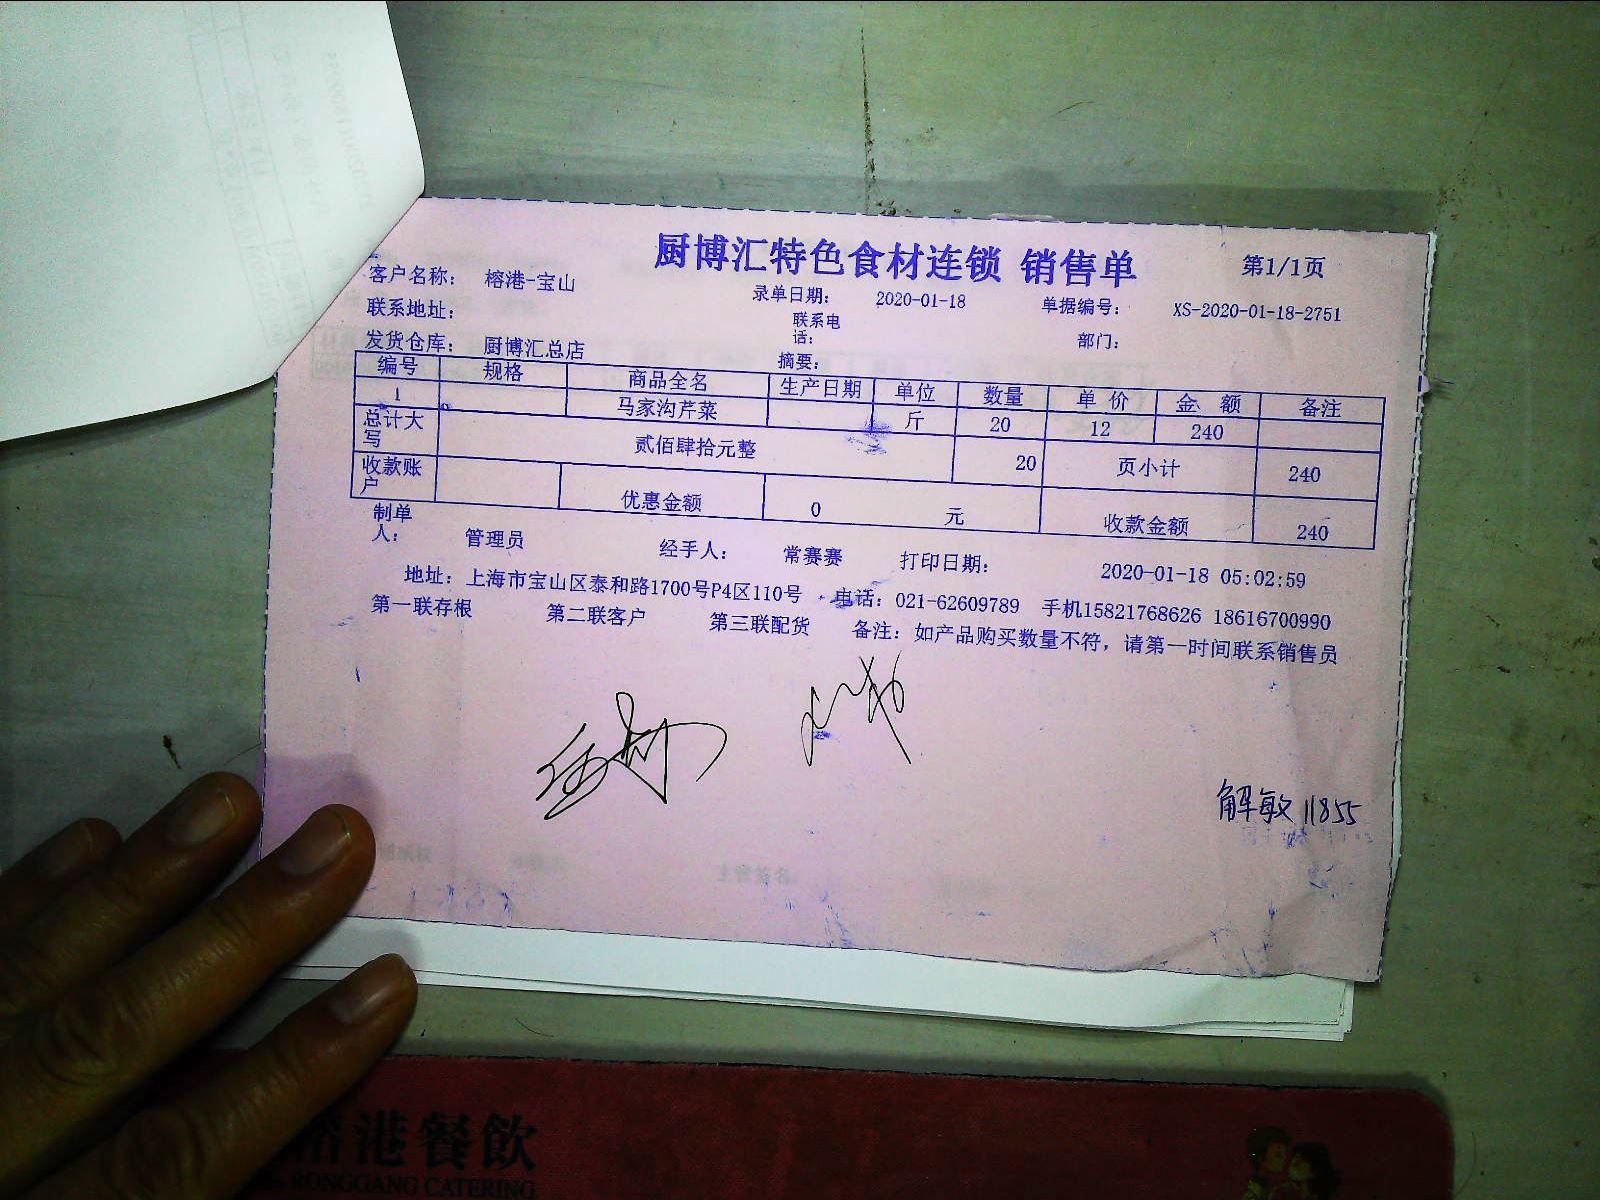 厨博汇特色食材连锁 销售单 第1/1页
客户名称： 榕港-宝山 录单日期： 2020-01-18 单据编号： XS-2020-01-18-2751
联系地址： 联系电话： 部门：
发货仓库： 厨博汇总店 摘要：
编号 规格 商品全名 生产日期 单位 数量 单 价 金 额 备注
1 马家沟芹菜 斤 20 12 240
总计大写 贰佰肆拾元整 20 页小计 240
收款账户 优惠金额 0 元 收款金额 240
制单人： 管理员 经手人： 常赛赛 打印日期： 2020-01-18 05:02:59
地址：上海市宝山区泰和路1700号P4区110号 电话：021-62609789 手机15821768626 18616700990
第一联存根 第二联客户 第三联配货 备注：如产品购买数量不符，请第一时间联系销售员
解敏 11855
榕港餐飲
RONGGANG CATERING